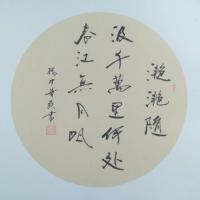 滟滟随
波千万里何处
春江无月明